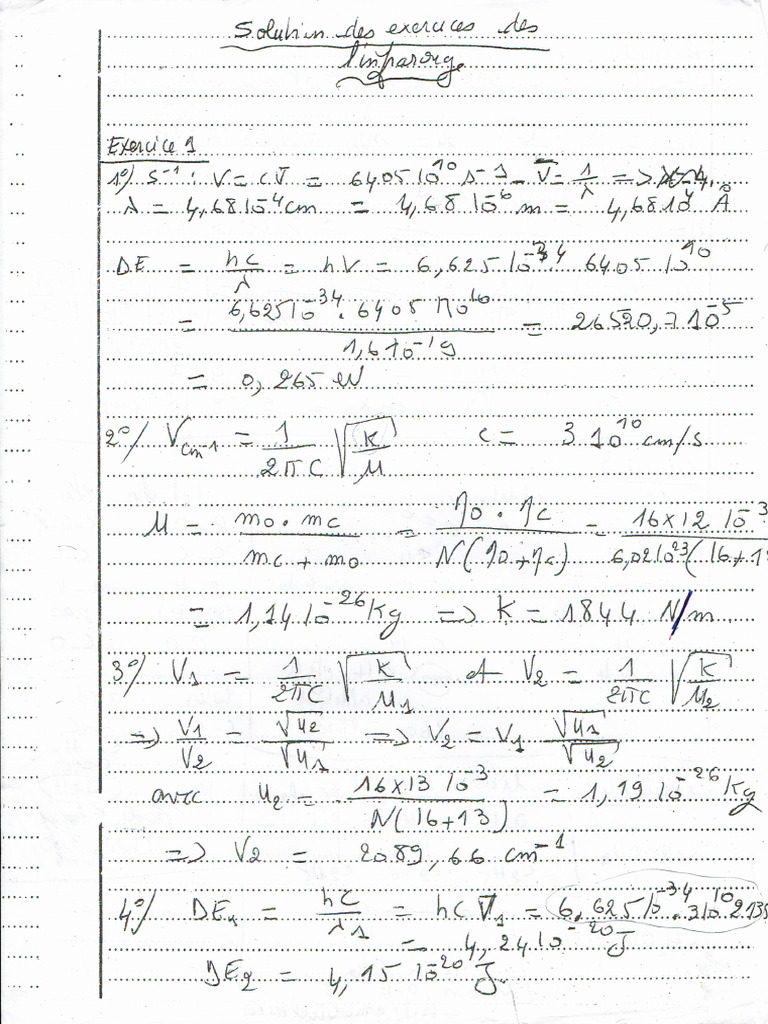 Solution des exercices des
l'infrarouge
Exercice 1
1°/ S⁻¹ : V = C V̄ = 6405 10¹⁰ s⁻¹ - V̄ = 1/λ =>
λ = 4,68 10⁻⁴ cm = 4,68 10⁻⁶ m = 4,68 10⁴ Å
DE = hc/λ = hV = 6,625 10⁻³⁴ 6405 10¹⁰
= 6,625 10⁻³⁴ . 6405 10¹⁰ / 1,6 10⁻¹⁹ = 26520,7 10⁻⁵
= 0,265 eV
2°/ V cm⁻¹ = 1/2πC √K/μ C = 3 10¹⁰ cm/s
μ = mo . mc / mc + mo = ηo . ηc / N(ηo + ηc) = 16 x 12 10⁻³ / 6,02 10²³ (16 + 1
= 1,14 10⁻²⁶ Kg => K = 1844 N/m
3°/ V₁ = 1/2πC √K/μ₁ et V₂ = 1/2πC √K/μ₂
=> V₁/V₂ = √μ₂/√μ₁ => V₂ = V₁ √μ₁/√μ₂
avec μ₂ = 16 x 13 10⁻³ / N(16 + 13) = 1,19 10⁻²⁶ Kg
=> V₂ = 2089,66 cm⁻¹
4°/ DE₁ = hc/λ₁ = hc V̄₁ = 6,625 10⁻³⁴ . 3 10¹⁰ 2135
= 4,24 10⁻²⁰ J
DE₂ = 4,15 10⁻²⁰ J